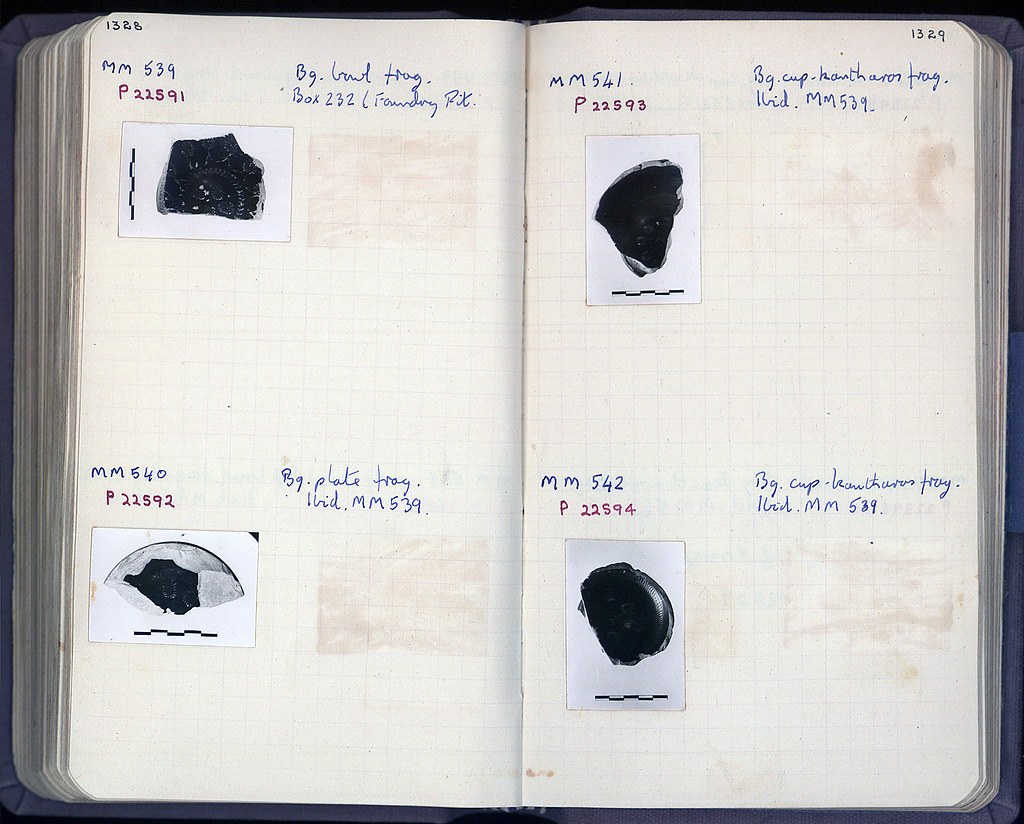 1328
MM 539
P 22591
Bg. bowl frag.
Box 232 (Foundry Pit.
MM 540
P 22592
Bg. plate frag.
Ibid. MM 539.
1329
MM 541.
P 22593
Bg. cup-kantharos frag.
Ibid. MM 539.
MM 542
P 22594
Bg. cup-kantharos frag.
Ibid. MM 539.